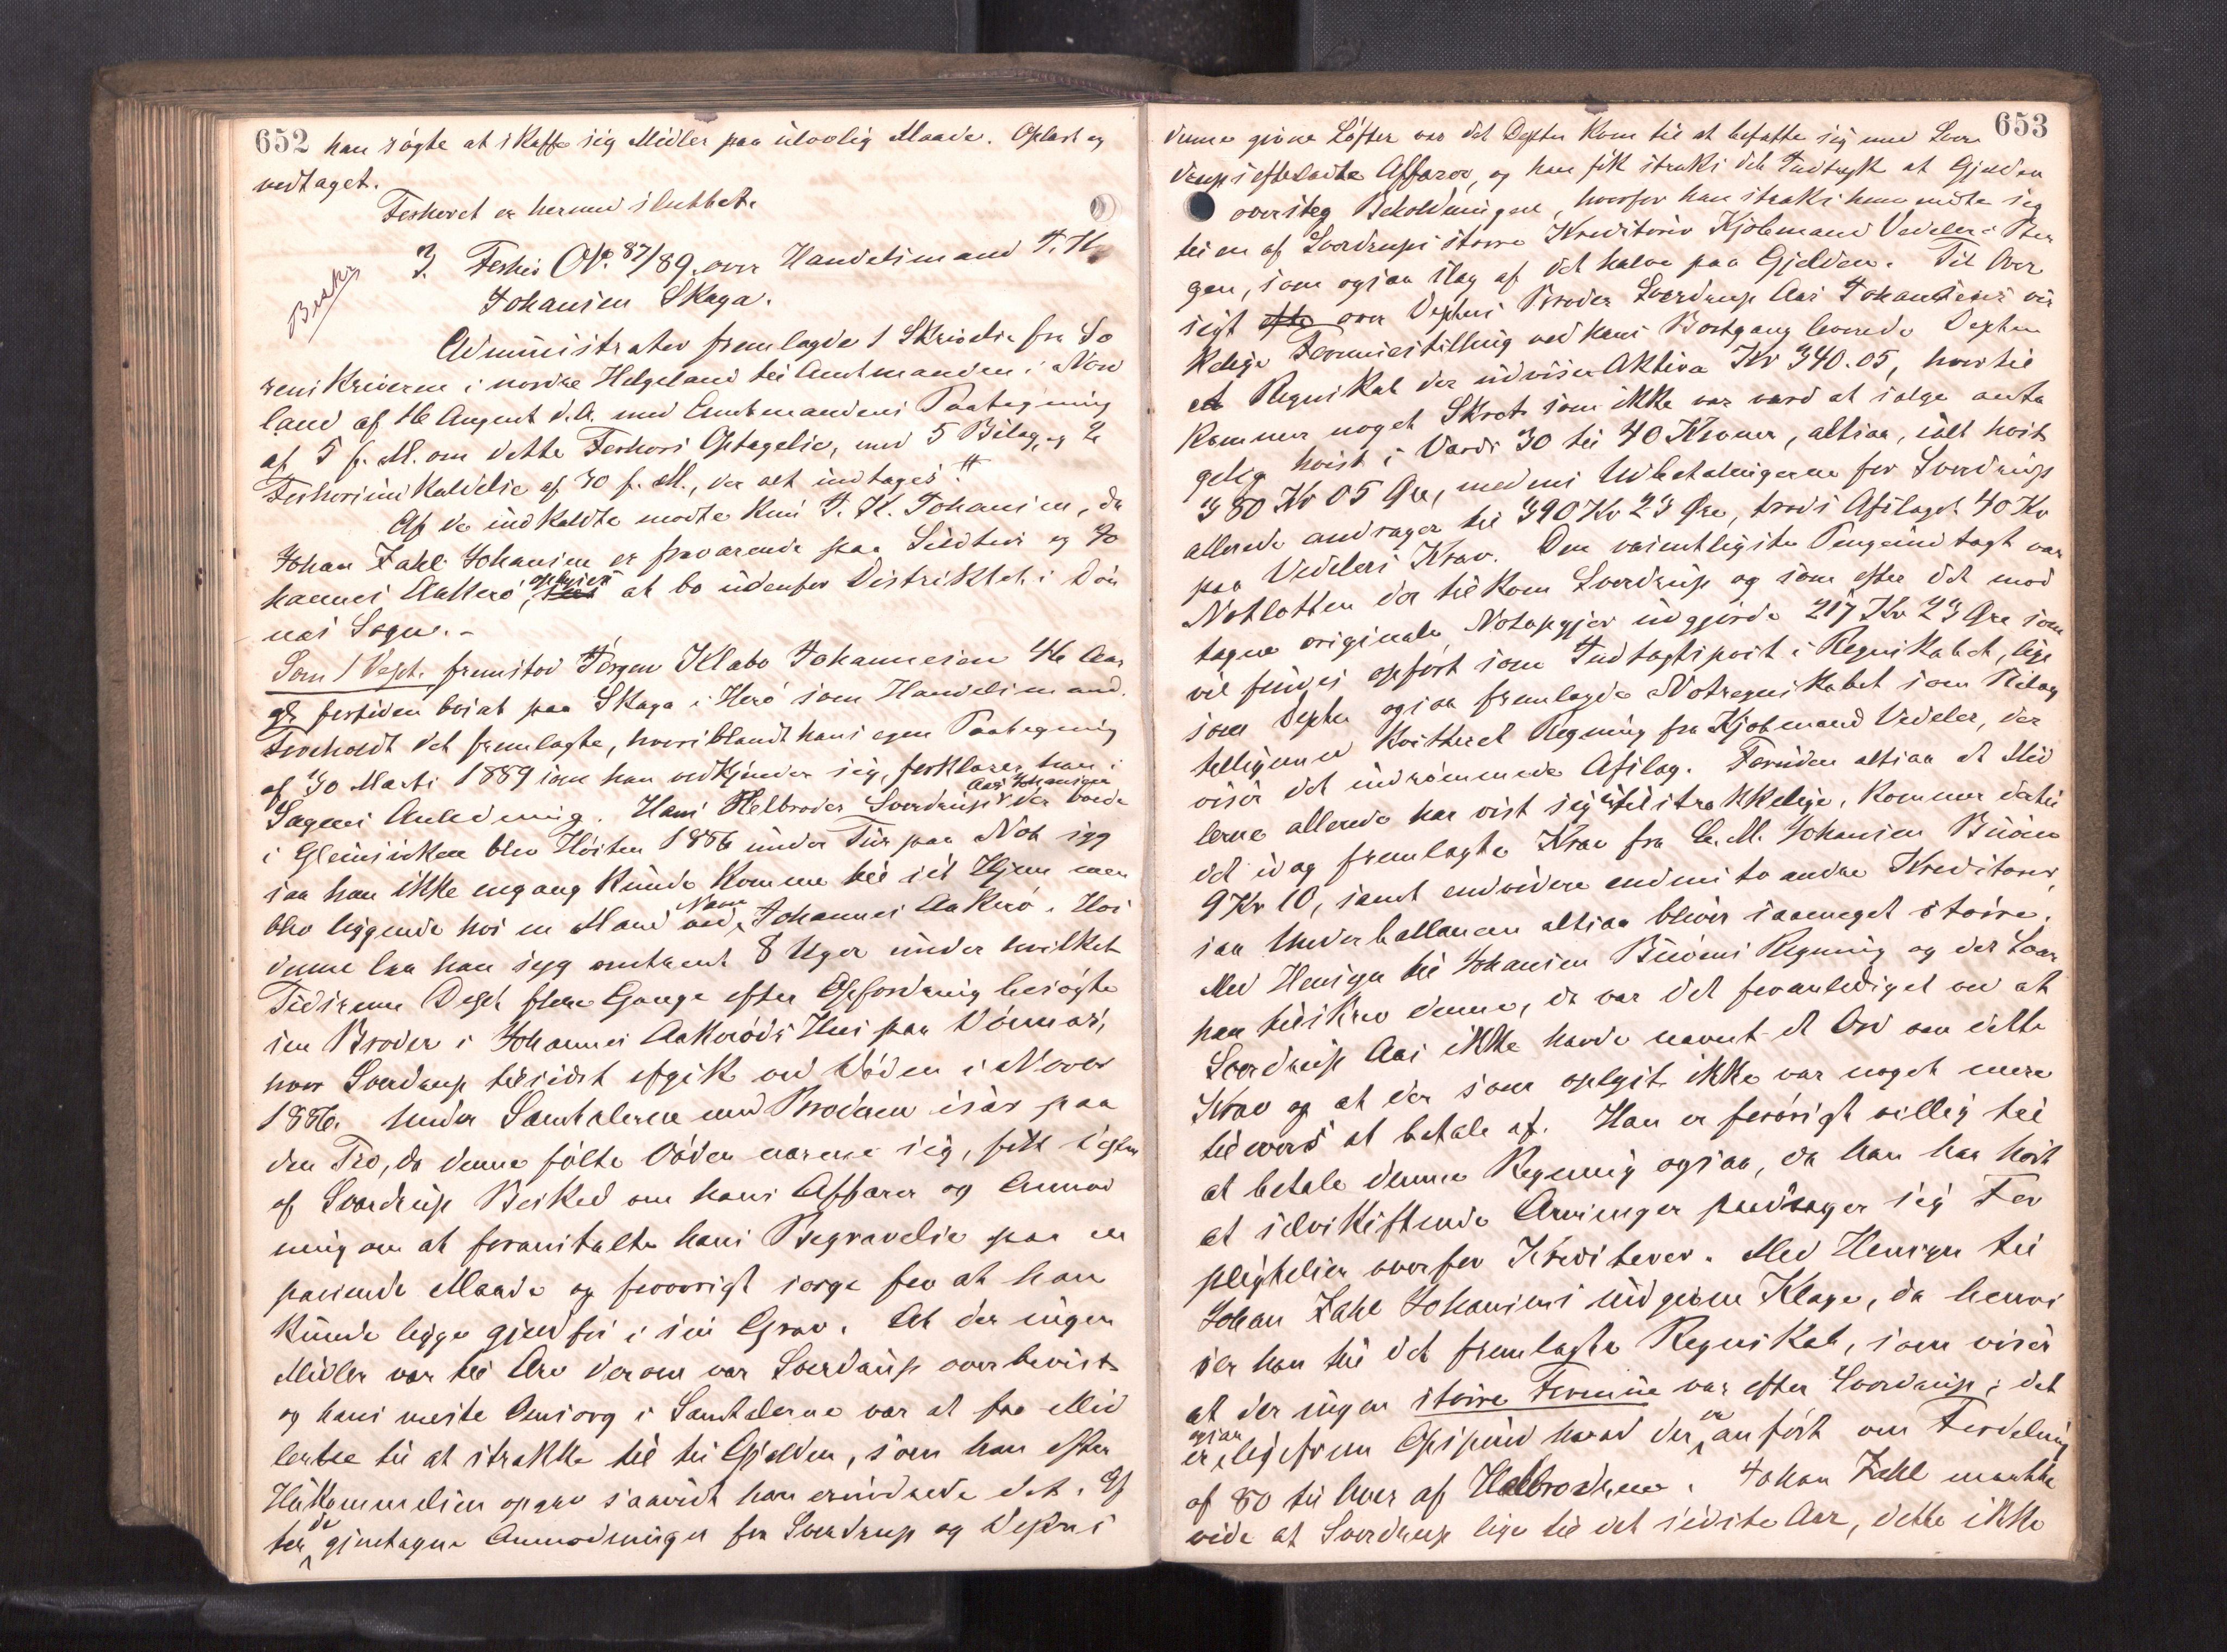 652 han søgte at skaffe sig Midler paa ulovlig Maade. Oplæst og
vedtaget.
Forhøret er hermed sluttet.
3. Forhør No. 87/89 over Handelsmand J. K.
Beskr
Johansen Skaga.
Administrator fremlagde 1 Skrivelse fra So
renskriveren i nordre Helgeland til Amtmanden i Nord
land af 16 August d.A. med Amtmandens Paategning
af 5 f. M. om dette Forhørs Optagelse, med 5 Bilag, og 2
Forhørsindkaldelse af 30 f. M., der alt indtages #
Af de indkaldte mødte kun J. K. Johansen, da
Johan Zahl Johansen er fraværende paa Sildfiske og Jo
hannes Aakerø, oplyses at bo udenfor Distriktet i Døn
næs Sogn.-
Som 1 Dept. fremstod Jørgen Klabo Johannesen 46 Aar
gl. fortiden bosat paa Skaga i Herø som Handelsmand.
Foreholdt det fremlagte, hvoriblandt hans egen Paategning
af 30 Marts 1889 som han vedkjender sig, forklarer han i
Sagens Anledning. Hans Helbroder Sverdrup Aas Johansen der boede
i Gleinsviken blev Høsten 1886 under Tur paa Not syg
saa han ikke engang kunde komme til sit Hjem men
blev liggende hos en Mand ved Navn Johannes Aakerø. Hos
denne laa han syg omtrent 8 Uger under hvilket
Tidsrum Dept flere Gange efter Opfordring besøgte
sin Broder i Johannes Aakerøds Hus paa Dønnæs,
hvor Sverdrup tilsidst afgik ved Døden i Novbr
1886. Under Samtalerne med Broderen især paa
den Tid, da denne følte Døden nærme sig, fik Depten
af Sverdrup Besked om hans Affærer og Anmod
ning om at foranstalte hans Begravelse paa en
passende Maade og forøvrigt sørge for at han
kunde ligge gjældfri i sin Grav. At der ingen
Midler var til Arv derom var Sverdrup overbevist
og hans meste Omsorg i Samtalerne var at faa Mid
lerne til at strække til til Gjælden, som han efter
Hukommelsen opgav saavidt han erindrede det. Ef
ter de gjentagne Anmodninger fra Sverdrup og Deptens
653
denne givne Løfter var det Depten kom til at befatte sig med Sver
drups efterladte Affærer, og han fik straks det Indtryk at Gjælden
oversteg Beholdningen, hvorfor han straks henvendte sig
til en af Sverdrups større Kreditorer Kjøbmand Vedeler i Ber
gen, som ogsaa slog af det halve paa Gjelden. Til Over
sigt over Deptens Broder Sverdrup Aas Johansens vir
kelige Formuestilling ved hans Bortgang leverede Depten
et Regnskab der udviser Aktiva Kr 340.05, hvortil
kommer noget Skrot som ikke var værd at sælge anta
gelig høist i Værdi 30 til 40 Kroner, altsaa, ialt høist
380 Kr 05 Øre, medens Udbetalingerne for Sverdrup
allerede andrager til 390 Kr 23 Øre, trods Afslaget 40 Kr
paa Vedelers Krav. Den væsentligste Pengeindtægt var
Notlotten der tilkom Sverdrup og som efter det mod
tagne originale Notopgjør udgjorde 217 Kr 23 Øre som
vil findes opført som Indtægtspost i Regnskabet, lige
som Depten ogsaa fremlagde Notregnskabet som Bilag
telligemed kvitteret Regning fra Kjøbmand Vedeler, der
viser det indrømmede Afslag. Foruden altsaa at Mid
lerne allerede har vist sig utilstrækkelige, kommer dertil
det idag fremlagte Krav fra L. M. Johansen Buøen
9 Kr 10, samt endvidere endnu to andre Kreditorer,
saa Underballancen altsaa bliver saameget større.
Med Hensyn til Johansen Buøens Regning og det Svar
han tilskrev denne, da var det foranlediget ved at
Sverdrup Aas ikke havde nævnt et Ord om dette
Krav og at der som oplyst ikke var noget mere
tilovers at betale af. Han er forøvrigt villig til
at betale denne Regning ogsaa, da han har hørt
at selvskiftende Arvinger paadrager sig For
pligtelser overfor Kreditorer. Med Hensyn til
Johan Zahl Johansens indgivne Klage, da henvi
ser han til det fremlagte Regnskab, som viser
at der ingen større Formue var efter Sverdrup; det
er ogsaa ligefrem Opspind hvad der er anført om Fordeling
af 80 til hver af Halbrødrene. Johan Zahl maatte
vide at Sverdrup lige til det sidste Aar, dette ikke